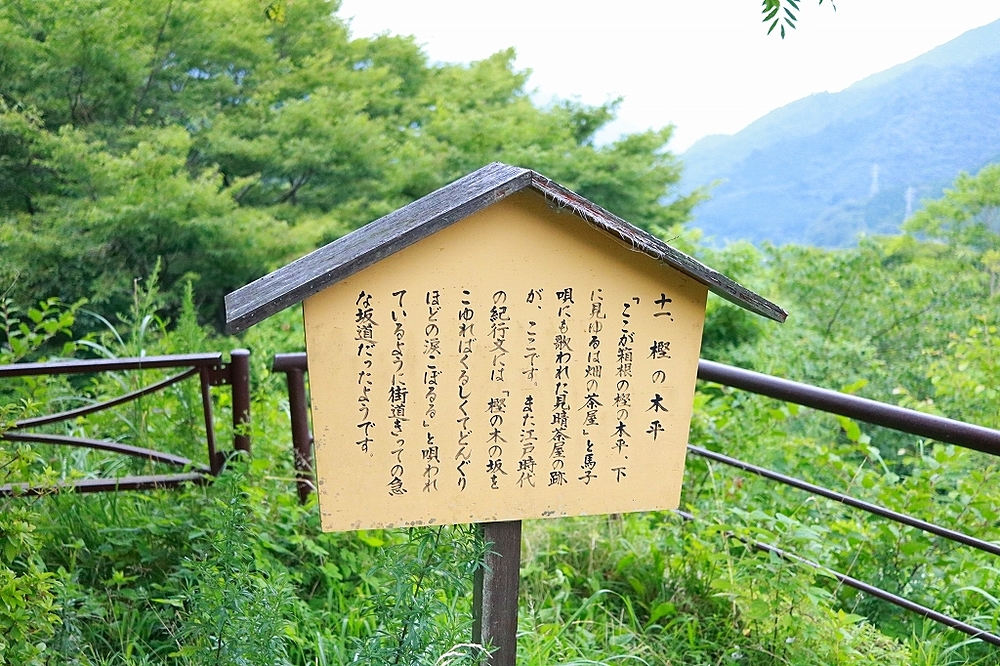 十一、樫の木平
「ここが箱根の樫の木平、下
に見ゆるは畑の茶屋」と馬子
唄にも歌われた見晴茶屋の跡
が、ここです。また江戸時代
の紀行文には「樫の木の坂を
こゆればくるしくてどんぐり
ほどの涙こぼるる」と唄われ
ているように街道きっての急
な坂道だったようです。